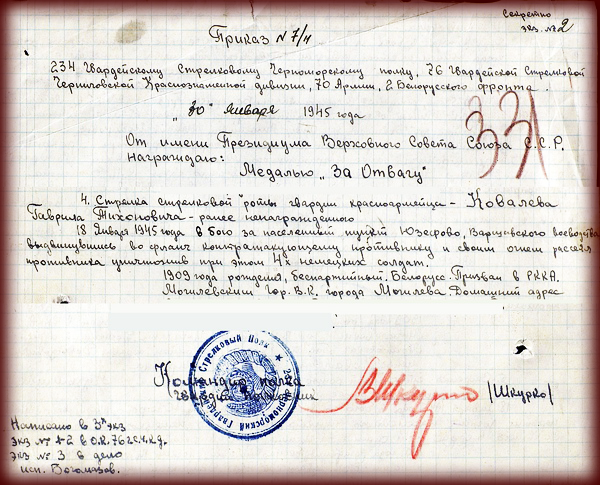 Секретно
экз. № 2
Приказ № 7/н
234 Гвардейскому Стрелковому Черноморскому полку, 76 Гвардейской Стрелковой
Черниговской Краснознаменной дивизии, 70 Армии, 2 Белорусского фронта.
"30" Января 1945 года
331
От имени Президиума Верховного Совета Союза С.С.Р.
награждаю:
Медалью „За Отвагу"
4. Стрелка стрелковой роты гвардии красноармейца - Ковалева
Гаврила Тихоновича - ранее ненагражденного
18 Января 1945 года в бою за населенный пункт Юзефово, Варшавского воеводства
выдвинувшись во фланг контратакующему противнику и своим огнем рассеял
противника уничтожив при этом 4х немецких солдат.
1909 года рождения, беспартийный. Белорус. Призван в РККА.
Могилевским Гор. В.К. города Могилева. Домашний адрес
Командир полка
гвардии полковник
/Шкурко/
Стрелковый Полк
Черноморский Гвардейский
Написано в 3х экз
экз № 1-2 в О.К. 76 г.с.ч.к.д.
экз № 3 в дело
исп. Богомазов.